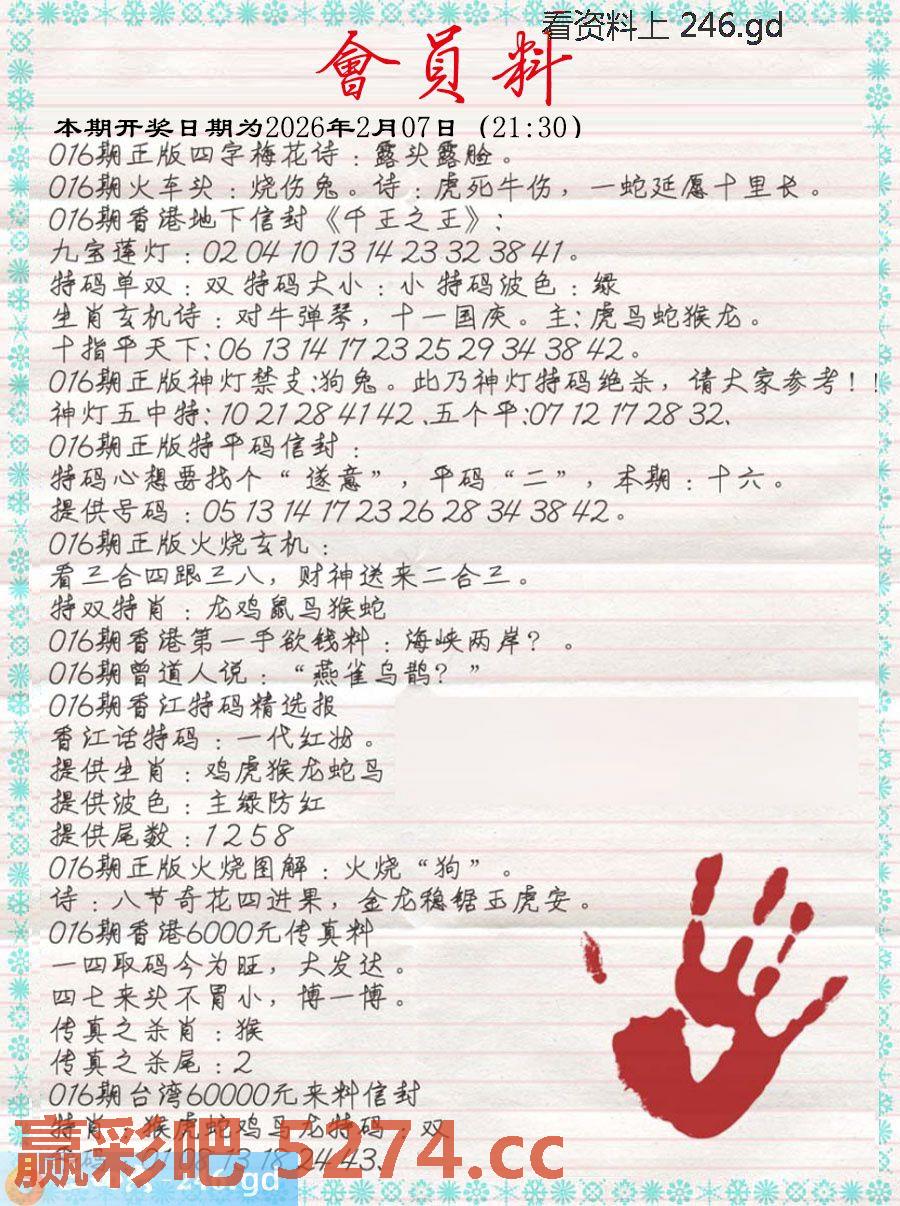 看资料上 246.gd
會員料
本期开奖日期为2026年2月07日（21:30）
016期正版四字梅花诗：露头露脸。
016期火车头：烧伤兔。诗：虎死牛伤，一蛇延愿十里长。
016期香港地下信封《千王之王》:
九宝莲灯：02 04 10 13 14 23 32 38 41。
特码单双：双 特码大小：小 特码波色：绿
生肖玄机诗：对牛弹琴，十一国庆。主:虎鸟蛇猴龙。
十指平天下:06 13 14 17 23 25 29 34 38 42。
016期正版神灯禁支:狗兔。此乃神灯特码绝杀，请大家参考！！
神灯五中特:10 21 28 41 42、五个平:07 12 17 28 32、
016期正版特平码信封：
特码心想要找个“遂意”，平码“二”，本期：十六。
提供号码：05 13 14 17 23 26 28 34 38 42。
016期正版火烧玄机：
看三合四跟三八，财神送来二合三。
特双特肖：龙鸡鼠马猴蛇
016期香港第一手欲钱料：海峡两岸？。
016期曾道人说：“燕雀乌鹊？”
016期香江特码精选报
香江话特码：一代红妆。
提供生肖：鸡虎猴龙蛇马
提供波色：主绿防红
提供尾数：1 2 5 8
016期正版火烧图解：火烧“狗”。
诗：八节奇花四进果，金龙稳锯玉虎安。
016期香港6000元传真料
一四取码今为旺，大发达。
四七来头不冒小，博一博。
传真之杀肖：猴
传真之杀尾：2
016期台湾60000元来料信封
特肖：猴虎蛇鸡马龙特码：双
01 08 13 18 24 43、
赢彩吧 5274.cc
246.gd